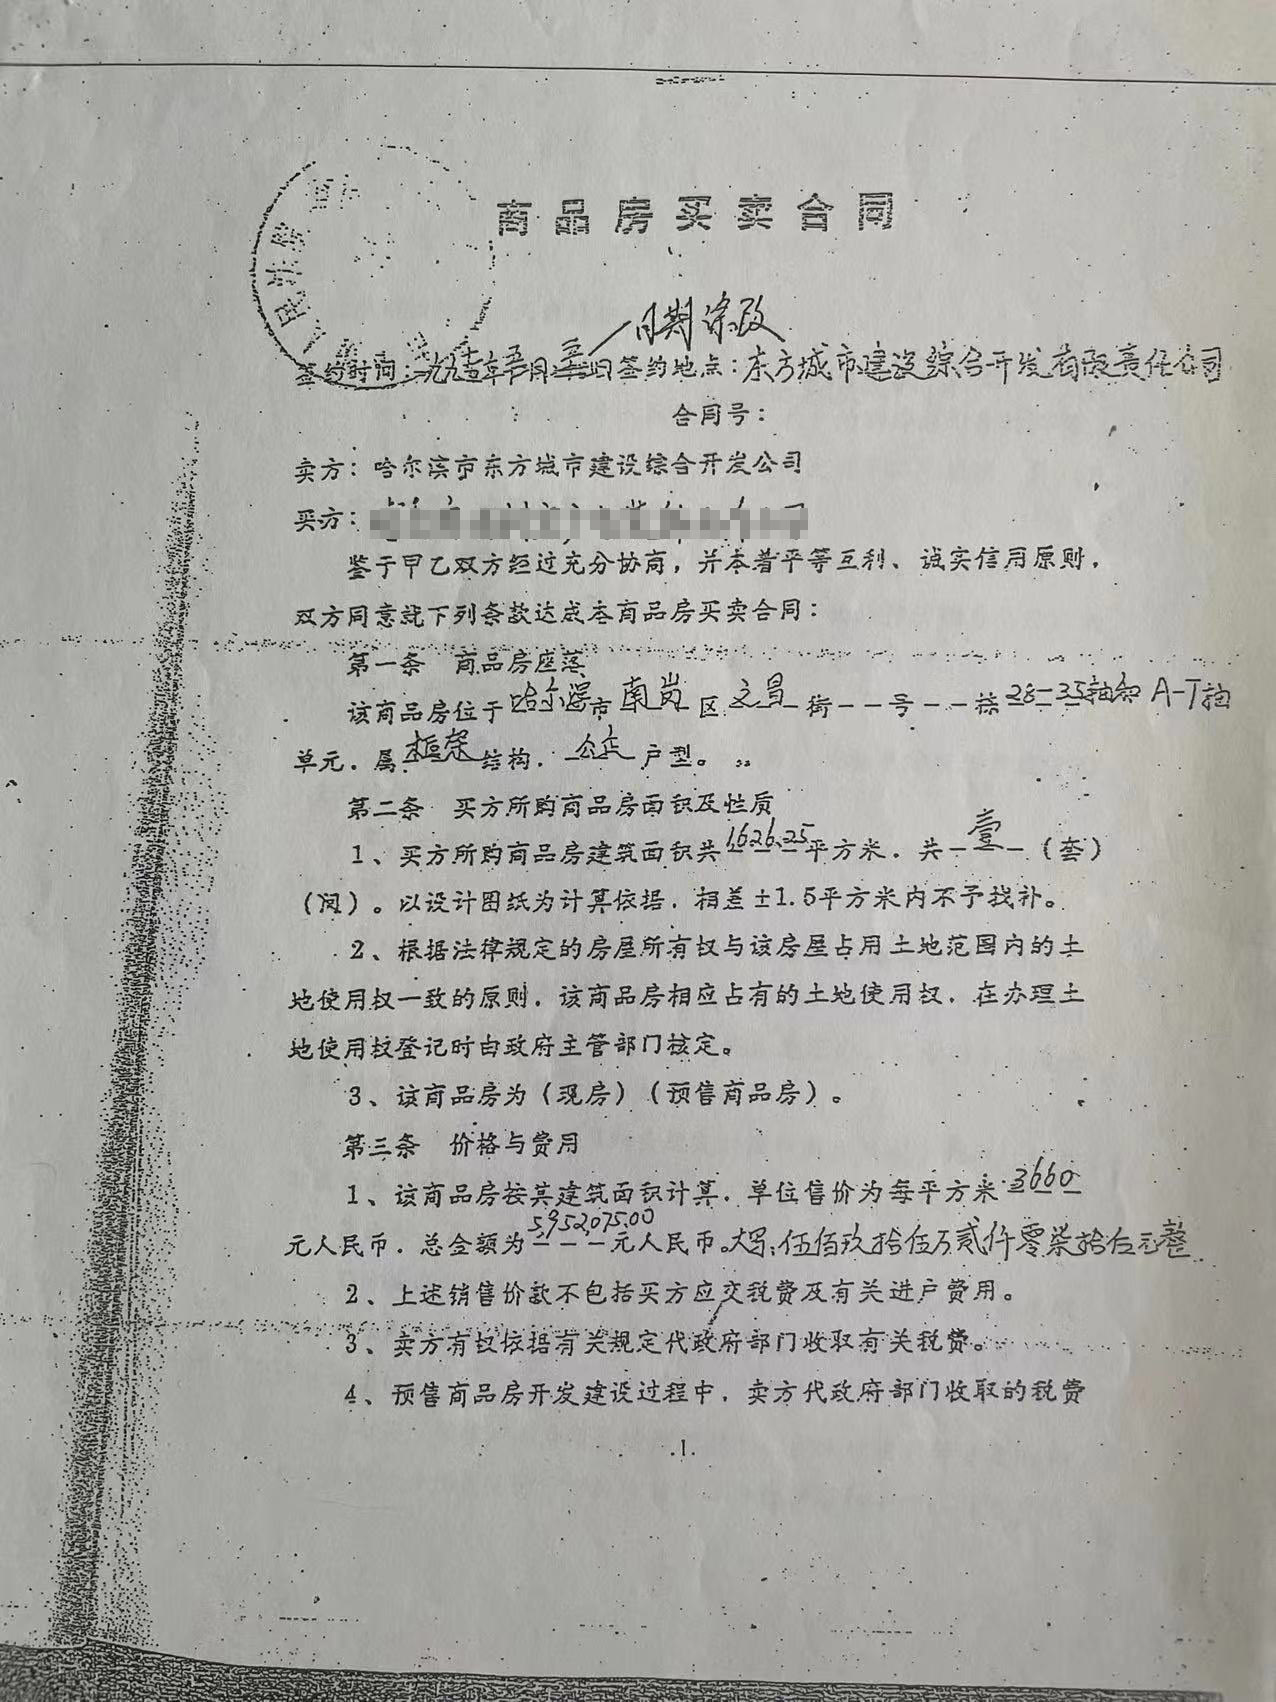 商品房买卖合同
日期涂改
签约时间:一九九七年五月 日签约地点:东方城市建设综合开发有限责任公司
合同号:
卖方:哈尔滨市东方城市建设综合开发公司
买方:
鉴于甲乙双方经过充分协商,并本着平等互利、诚实信用原则,
双方同意就下列条款达成本商品房买卖合同:
第一条 商品房座落
该商品房位于哈尔滨市南岗区文昌街--号--栋28-35轴和A-T轴
单元.属框架结构.公建户型。
第二条 买方所购商品房面积及性质
1、买方所购商品房建筑面积共1626.25平方米.共壹(套)
(间)。以设计图纸为计算依据.相差±1.5平方米内不予找补。
2、根据法律规定的房屋所有权与该房屋占用土地范围内的土
地使用权一致的原则.该商品房相应占有的土地使用权.在办理土
地使用权登记时由政府主管部门核定。
3、该商品房为(现房)(预售商品房)。
第三条 价格与费用
1、该商品房按其建筑面积计算.单位售价为每平方米3660
元人民币.总金额为5,952,075.00元人民币。大写:伍佰玖拾伍万贰仟零柒拾伍元整
2、上述销售价款不包括买方应交税费及有关进户费用。
3、卖方有权依据有关规定代政府部门收取有关税费。
4、预售商品房开发建设过程中.卖方代政府部门收取的税费
.1.